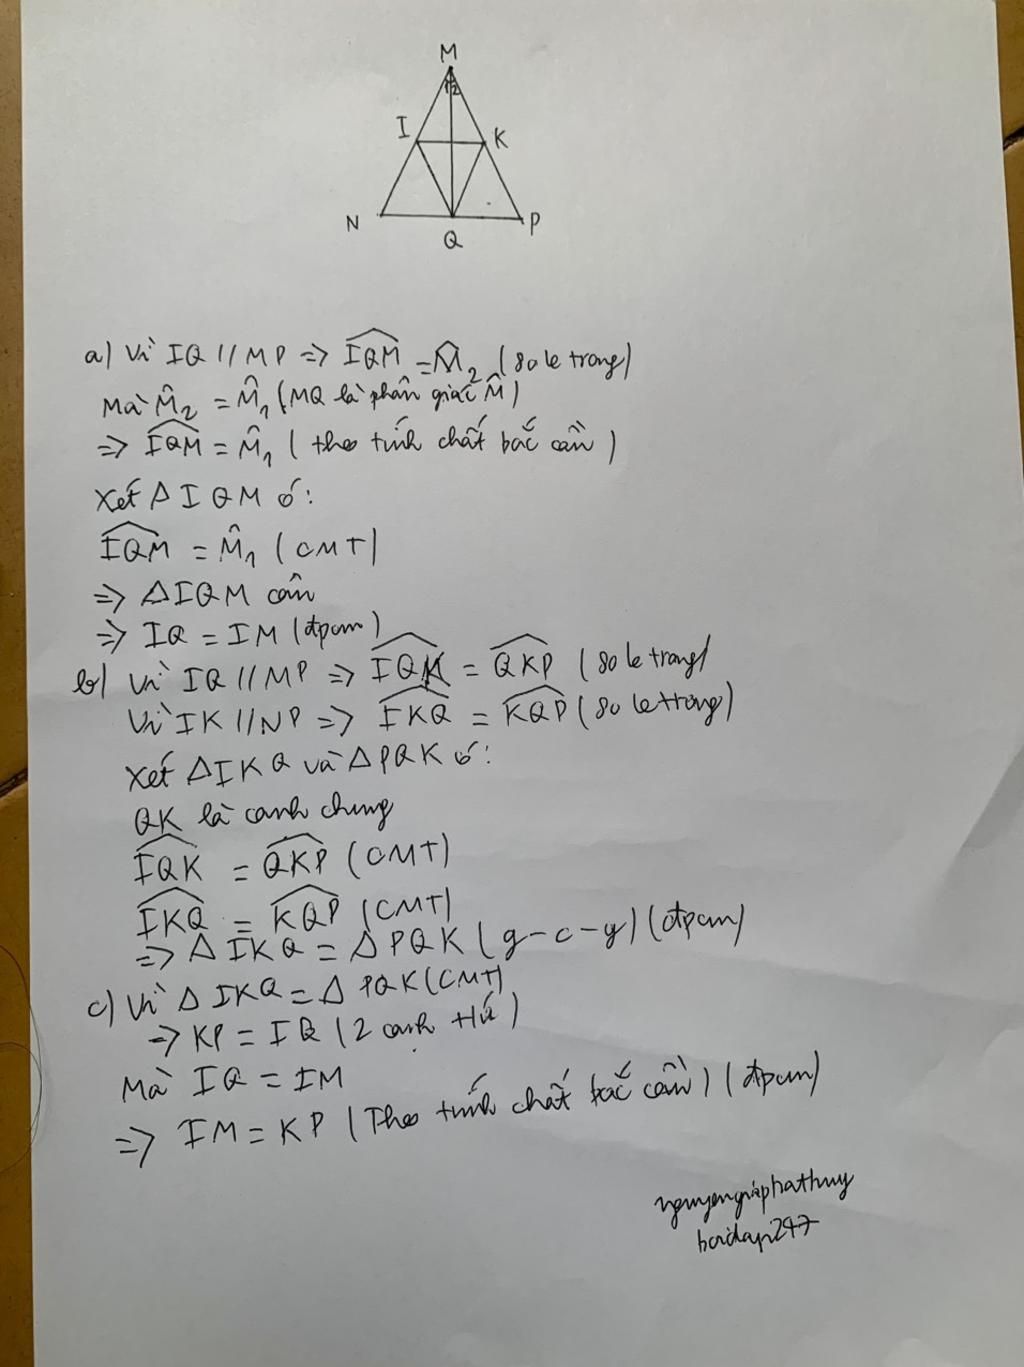 M
1 2
I K
N Q P
a) Vì IQ // MP => IQM = M̂₂ (so le trong)
Mà M̂₂ = M̂₁ (MQ là phân giác M̂)
=> IQM = M̂₁ (theo tính chất bắc cầu)
Xét Δ IQM có:
IQM = M̂₁ (CMT)
=> Δ IQM cân
=> IQ = IM (đpcm)
b) Vì IQ // MP => IQK = QKP (so le trong)
Vì IK // NP => IKQ = KQP (so le trong)
Xét Δ IKQ và Δ PQK có:
QK là cạnh chung
IQK = QKP (CMT)
IKQ = KQP (CMT)
=> Δ IKQ = Δ PQK (g-c-g) (đpcm)
c) Vì Δ IKQ = Δ PQK (CMT)
=> KP = IQ (2 cạnh tứ)
Mà IQ = IM
=> IM = KP (Theo tính chất bắc cầu) (đpcm)
nguyengiaphathuy
hoidap247